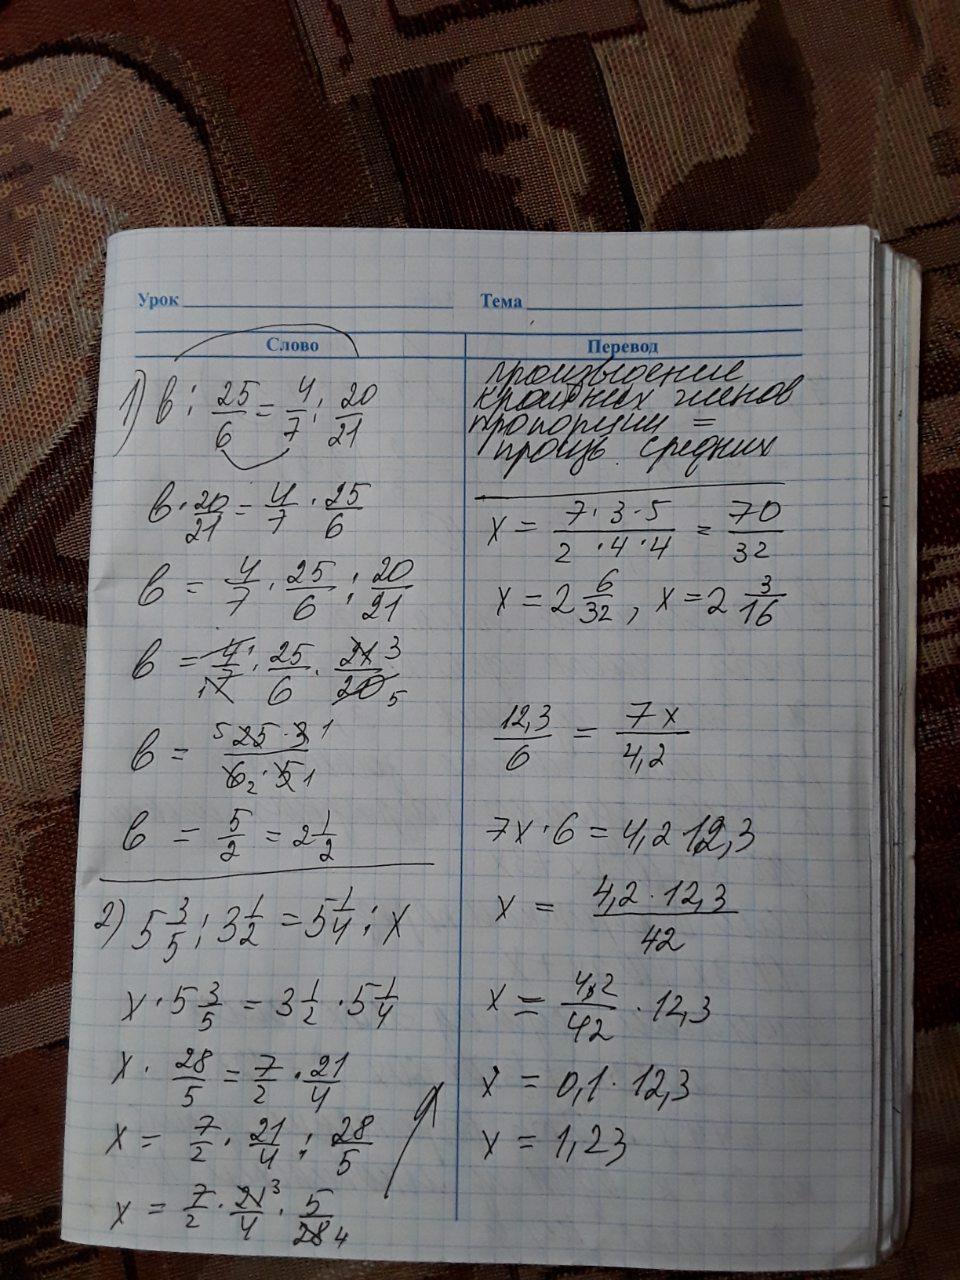 Урок
Тема
Слово
Перевод
1) в : 25/6 = 4/7 : 20/21
в · 20/21 = 4/7 · 25/6
в = 4/7 · 25/6 : 20/21
в = 4 1/1 7 · 25/6 · 21 3/20 5
в = 5 25 · 3 1/6 2 · 5 1
в = 5/2 = 2 1/2
2) 5 3/5 : 3 1/2 = 5 1/4 : х
х · 5 3/5 = 3 1/2 · 5 1/4
х · 28/5 = 7/2 · 21/4
х = 7/2 · 21/4 : 28/5
х = 7/2 · 21 3/4 · 5/28 4
произведение
крайних членов
пропорции =
произв. средних
х = 7 · 3 · 5/2 · 4 · 4 = 70/32
х = 2 6/32, х = 2 3/16
12,3/6 = 7х/4,2
7х · 6 = 4,2 12,3
х = 4,2 · 12,3/42
х = 4,2/42 · 12,3
х = 0,1 · 12,3
х = 1,23